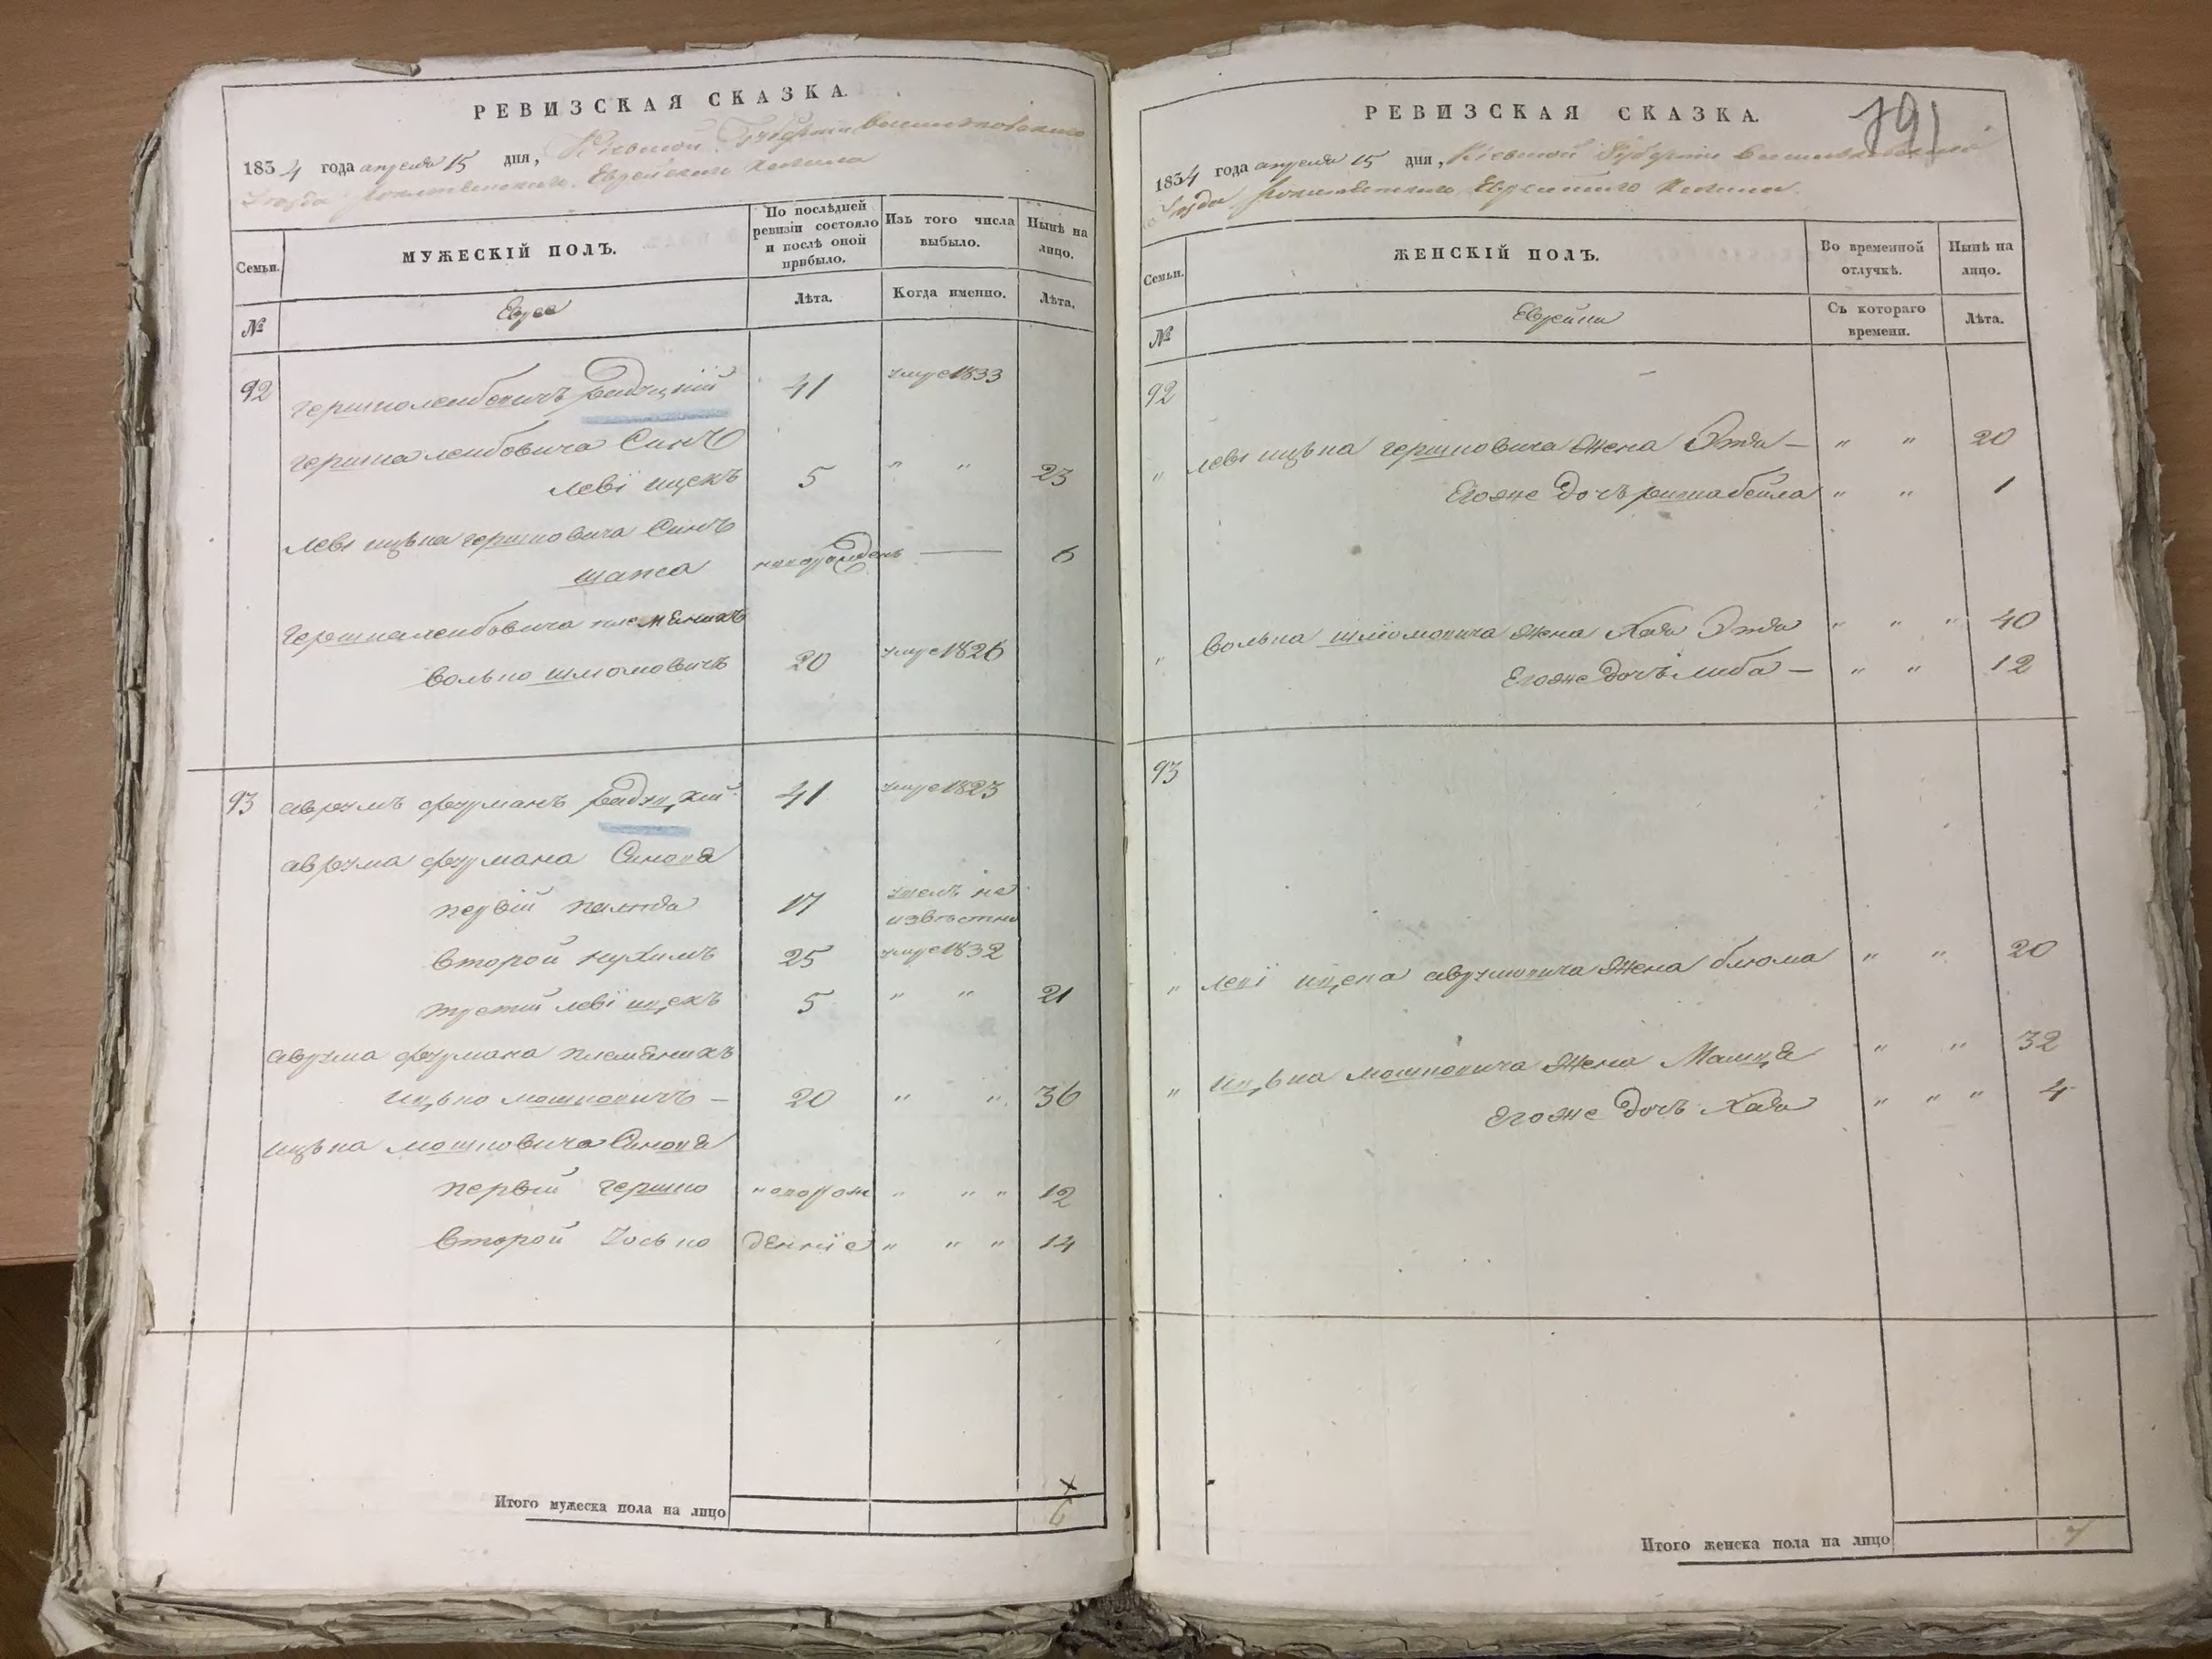 РЕВИЗСКАЯ СКАЗКА.
1834 года апреля 15 дня, Кіевской Губерніи Васильковскаго
Уезда Еврейскаго Кагала
Семьи.
МУЖЕСКІЙ ПОЛЪ.
По послѣдней ревизіи состояло и послѣ оной прибыло.
Изъ того числа выбыло.
Нынѣ на лицо.
№
Евреи
Лѣта.
Когда именно.
Лѣта.
92 Гершко Лейбовичъ 41 умре 1833
Гершка Лейбовича Синъ
Леві Ицекъ 5 " " 23
Леві Ицька Гершковича Синъ
новорожденъ — 6
Гершка Лейбовича племеникъ
Волько Шломовичъ 20 умре 1826
93 Аврумъ Фурманъ 41 умре 1823
Аврума Фурмана Синовя
первій 17 неизвѣстно
второй Нухимъ 25 умре 1832
третій Леві Ицекъ 5 " " 21
Аврума Фурмана племеникъ
Ицько Мошковичъ — 20 " " 36
Ицька Мошковича Синовя
первый Гершко новорож " " " 12
второй Іосько деннie " " " 14
Итого мужеска пола на лицо 6
РЕВИЗСКАЯ СКАЗКА.
791
1834 года апреля 15 дня, Кіевской Губерніи Васильковскаго
Уезда Еврейскаго Кагала.
Семьи.
ЖЕНСКІЙ ПОЛЪ.
Во временной отлучкѣ.
Нынѣ на лицо.
№
Еврейки
Съ котораго времени.
Лѣта.
92
" Леві Ицька Гершковича жена — " " 20
Егоже дочъ бейла " " 1
" Волька Шліомовича жена Хая " " " 40
Егоже дочъ Либа — " " 12
93
" Леві Ицека Аврумовича жена Блюма " " 20
" Ицька Мошковича жена " " 32
Егоже дочъ Хая " " " 4
Итого женска пола на лицо 7